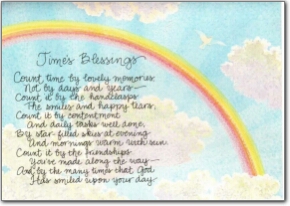 Time's Blessings
Count time by lovely memories
Not by days and years—
Count it by the handclasps
The smiles and happy tears,
Count it by contentment
And daily tasks well done,
By star-filled skies at evening
And mornings warm with sun.
Count it by the friendships
You've made along the way—
And by the many times that God
Has smiled upon your day.